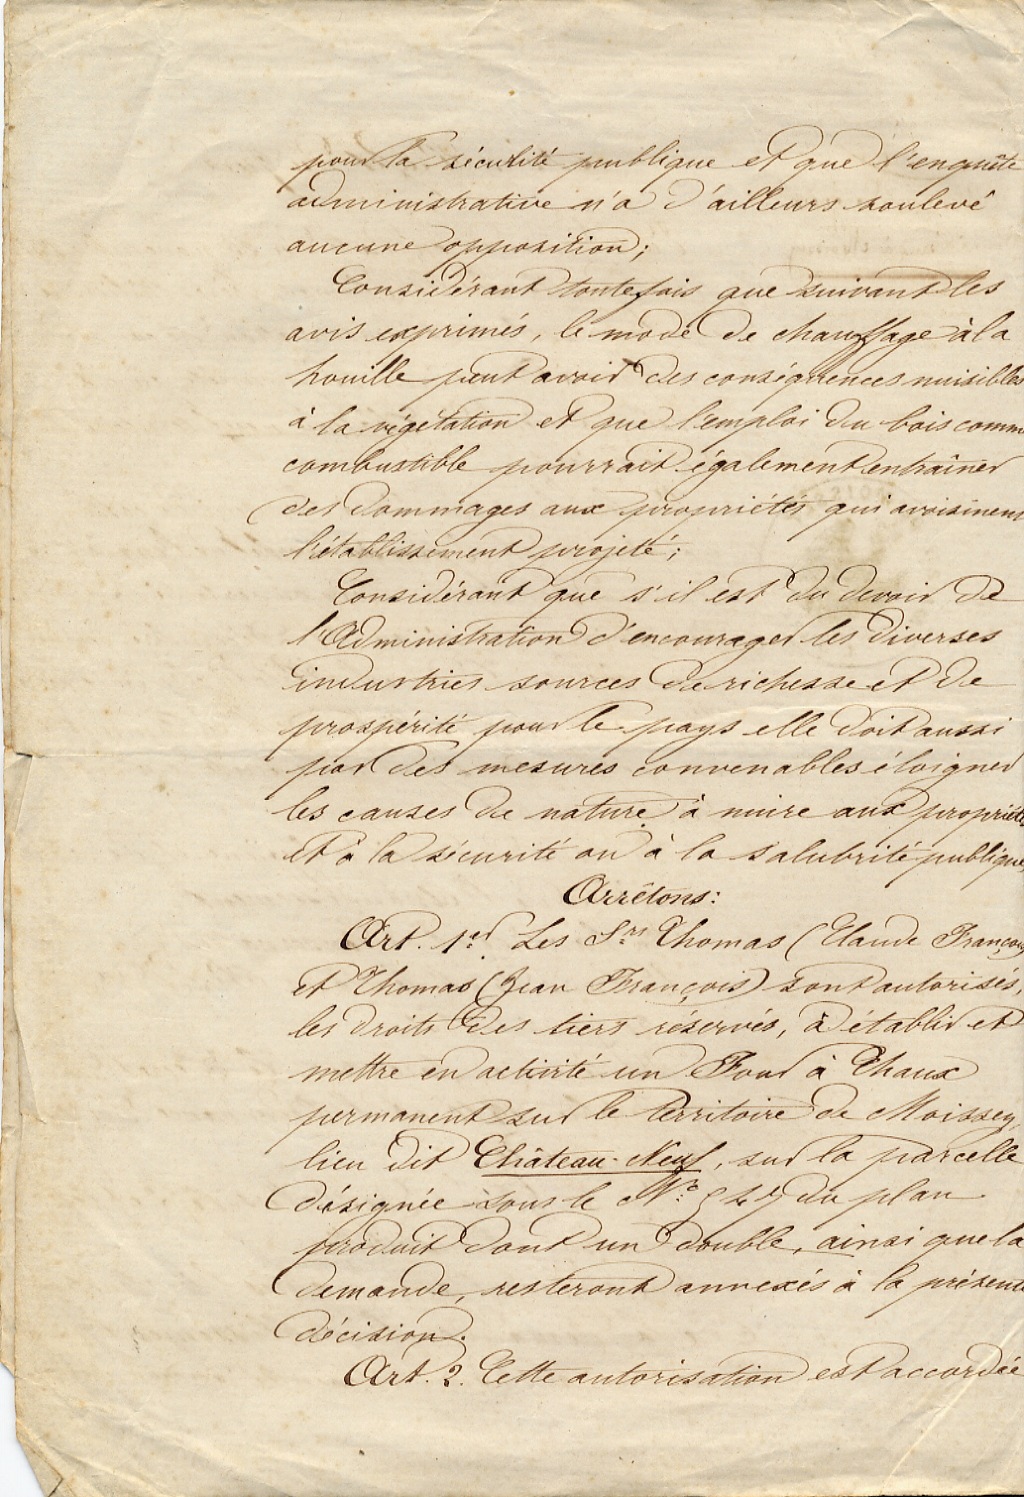 pour la sécurité publique et que l'enquête
administrative n'a d'ailleurs soulevé
aucune opposition;
Considérant toutefois que suivant les
avis exprimés, le mode de chauffage à la
houille peut avoir des conséquences nuisibles
à la végétation et que l'emploi du bois comm
combustible pourrait également entraîner
des dommages aux propriétés qui avoisinent
l'établissement projeté;
Considérant que s'il est du devoir de
l'Administration d'encourager les diverses
industries sources de richesse et de
prospérité pour le pays elle doit aussi
par des mesures convenables éloigner
les causes de nature à nuire aux propriétés
et à la sécurité ou à la salubrité publique,
Arrêtons:
Art. 1er. Les Srs Thomas (Claude François
et Thomas (Jean François) sont autorisés,
les droits des tiers réservés, à établir et
mettre en activité un Four à Chaux
permanent sur le territoire de Moissey,
lieu dit Château-Neuf, sur la parcelle
désignée sous le No: du plan
produit dont un double, ainsi que la
demande, resteront annexés à la présent
décision.
Art. 2. Cette autorisation est accordée